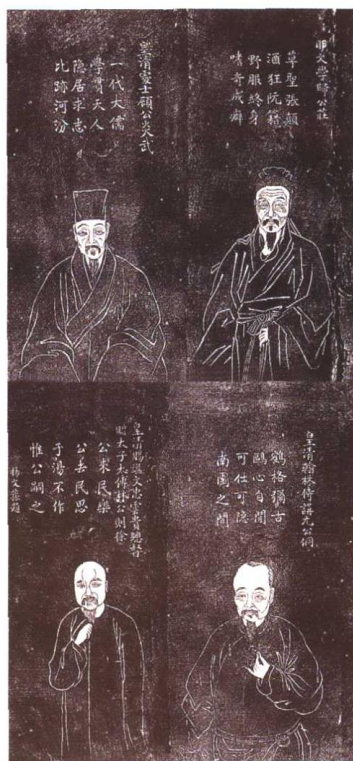 明文學歸公莊
草聖張顛
酒狂阮籍
野服終身
嗜奇成癖
皇清處士顧公炎武
一代大儒
學貫天人
隱居求志
比跡河汾
皇清翰林侍講尤公侗
鶴格猶古
鷗心自閒
可仕可隱
南園之間
皇清賜謚文忠雲貴總督
贈太子太傅林公則徐
公來民樂
公去民思
于湯不作
惟公嗣之